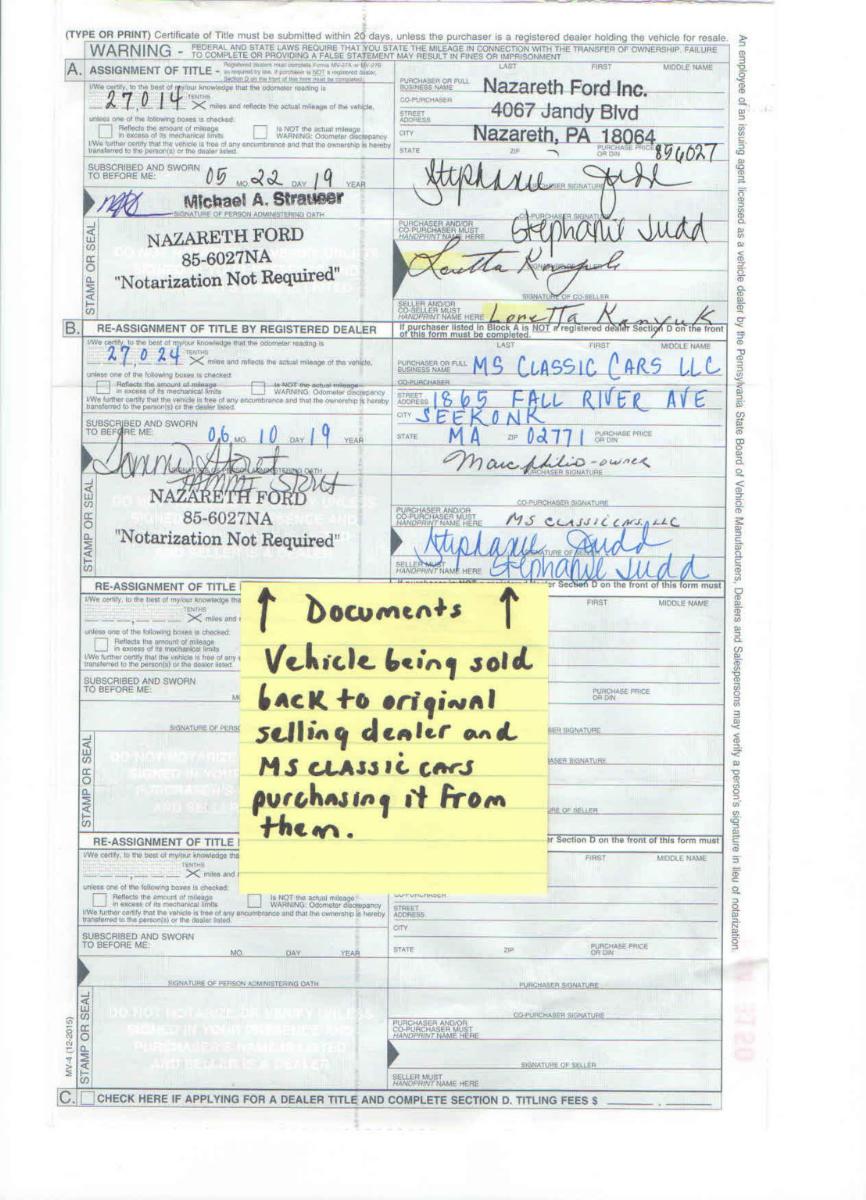 (TYPE OR PRINT) Certificate of Title must be submitted within 20 days, unless the purchaser is a registered dealer holding the vehicle for resale.
WARNING - FEDERAL AND STATE LAWS REQUIRE THAT YOU STATE THE MILEAGE IN CONNECTION WITH THE TRANSFER OF OWNERSHIP. FAILURE
TO COMPLETE OR PROVIDING A FALSE STATEMENT MAY RESULT IN FINES OR IMPRISONMENT
A. ASSIGNMENT OF TITLE - Registered dealers must complete Forms MV-27A or MV-27B
as required by law. If purchaser is NOT a registered dealer,
Section D on the front of this form must be completed.
LAST FIRST MIDDLE NAME
I/We certify, to the best of my/our knowledge that the odometer reading is
27,014 TENTHS X miles and reflects the actual mileage of the vehicle,
unless one of the following boxes is checked:
Reflects the amount of mileage
in excess of its mechanical limits
Is NOT the actual mileage
WARNING: Odometer discrepancy
I/We further certify that the vehicle is free of any encumbrance and that the ownership is hereby
transferred to the person(s) or the dealer listed.
PURCHASER OR FULL
BUSINESS NAME Nazareth Ford Inc.
CO-PURCHASER
STREET
ADDRESS 4067 Jandy Blvd
CITY Nazareth, PA 18064
STATE ZIP PURCHASE PRICE
OR DIN 896027
SUBSCRIBED AND SWORN
TO BEFORE ME: 05 MO. 22 DAY 19 YEAR
Michael A. Strauser
SIGNATURE OF PERSON ADMINISTERING OATH
STAMP OR SEAL
NAZARETH FORD
85-6027NA
"Notarization Not Required"
Stephanie Judd
PURCHASER SIGNATURE
CO-PURCHASER SIGNATURE
PURCHASER AND/OR
CO-PURCHASER MUST
HANDPRINT NAME HERE Stephanie Judd
Loretta Kanyuk
SIGNATURE OF CO-SELLER
SELLER AND/OR
CO-SELLER MUST
HANDPRINT NAME HERE Loretta Kanyuk
B. RE-ASSIGNMENT OF TITLE BY REGISTERED DEALER
If purchaser listed in Block A is NOT a registered dealer Section D on the front
of this form must be completed.
LAST FIRST MIDDLE NAME
I/We certify, to the best of my/our knowledge that the odometer reading is
27,024 TENTHS X miles and reflects the actual mileage of the vehicle,
unless one of the following boxes is checked:
Reflects the amount of mileage
in excess of its mechanical limits
Is NOT the actual mileage
WARNING: Odometer discrepancy
I/We further certify that the vehicle is free of any encumbrance and that the ownership is hereby
transferred to the person(s) or the dealer listed.
PURCHASER OR FULL
BUSINESS NAME MS CLASSIC CARS LLC
CO-PURCHASER
STREET
ADDRESS 1865 FALL RIVER AVE
CITY SEEKONK
STATE MA ZIP 02771 PURCHASE PRICE
OR DIN
SUBSCRIBED AND SWORN
TO BEFORE ME: 06 MO. 10 DAY 19 YEAR
SIGNATURE OF PERSON ADMINISTERING OATH
STAMP OR SEAL
NAZARETH FORD
85-6027NA
"Notarization Not Required"
owner
PURCHASER SIGNATURE
CO-PURCHASER SIGNATURE
PURCHASER AND/OR
CO-PURCHASER MUST
HANDPRINT NAME HERE MS CLASSIC CARS, LLC
Stephanie Judd
SIGNATURE OF SELLER
SELLER MUST
HANDPRINT NAME HERE Stephanie Judd
RE-ASSIGNMENT OF TITLE
Section D on the front of this form must
FIRST MIDDLE NAME
I/We certify, to the best of my/our knowledge tha
TENTHS
X miles and
unless one of the following boxes is checked:
Reflects the amount of mileage
in excess of its mechanical limits
I/We further certify that the vehicle is free of any
transferred to the person(s) or the dealer listed.
SUBSCRIBED AND SWORN
TO BEFORE ME:
PURCHASE PRICE
OR DIN
SIGNATURE OF PERS
STAMP OR SEAL
↑ Documents ↑
Vehicle being sold
back to original
selling dealer and
MS CLASSIC CARS
purchasing it from
them.
RE-ASSIGNMENT OF TITLE
Section D on the front of this form must
FIRST MIDDLE NAME
I/We certify, to the best of my/our knowledge tha
TENTHS
X miles and
unless one of the following boxes is checked:
Reflects the amount of mileage
in excess of its mechanical limits
Is NOT the actual mileage
WARNING: Odometer discrepancy
I/We further certify that the vehicle is free of any encumbrance and that the ownership is hereby
transferred to the person(s) or the dealer listed.
CO-PURCHASER
STREET
ADDRESS
CITY
STATE ZIP PURCHASE PRICE
OR DIN
SUBSCRIBED AND SWORN
TO BEFORE ME:
MO. DAY YEAR
SIGNATURE OF PERSON ADMINISTERING OATH
PURCHASER SIGNATURE
STAMP OR SEAL
DO NOT NOTARIZE OR VERIFY UNLESS
SIGNED IN YOUR PRESENCE AND
PURCHASER'S NAME IS LISTED
AND SELLER IS A DEALER
CO-PURCHASER SIGNATURE
PURCHASER AND/OR
CO-PURCHASER MUST
HANDPRINT NAME HERE
SIGNATURE OF SELLER
SELLER MUST
HANDPRINT NAME HERE
MV-4 (12-2015)
C. CHECK HERE IF APPLYING FOR A DEALER TITLE AND COMPLETE SECTION D. TITLING FEES $
An employee of an issuing agent licensed as a vehicle dealer by the Pennsylvania State Board of Vehicle Manufacturers, Dealers and Salespersons may verify a person's signature in lieu of notarization.